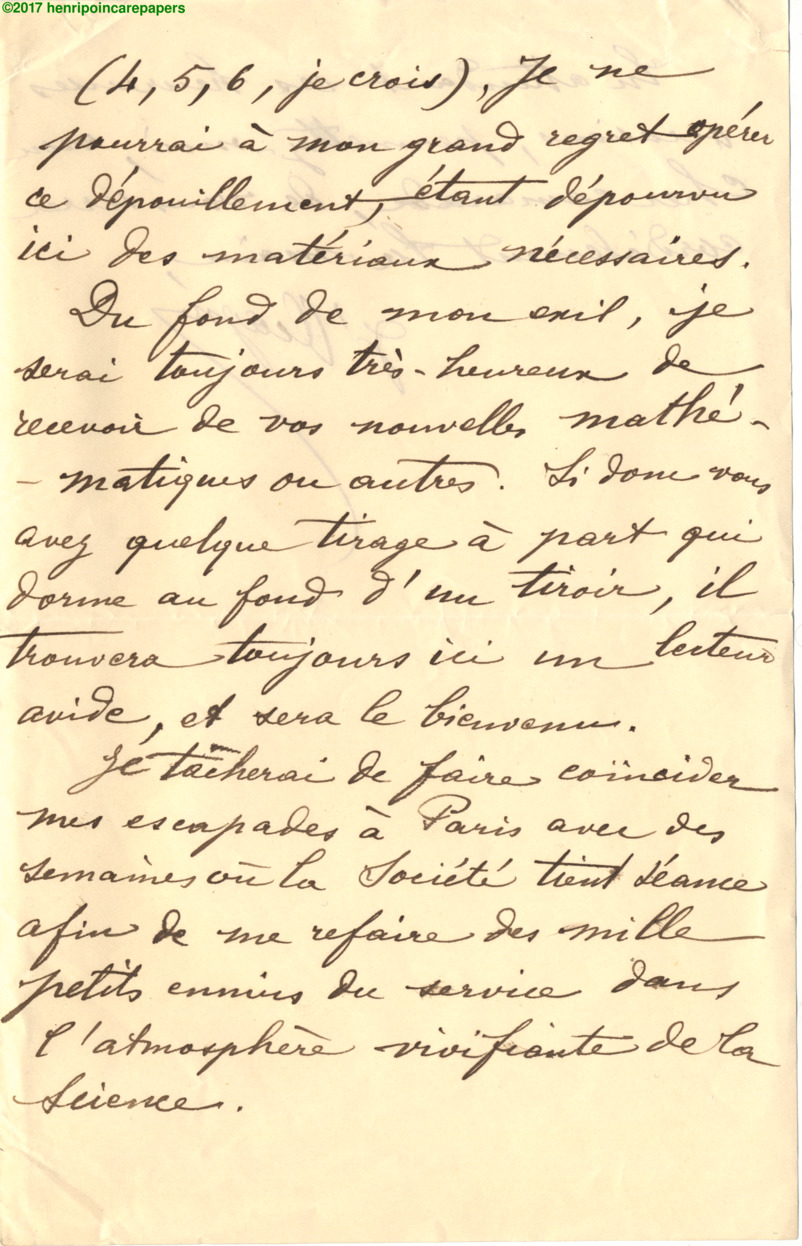 ©2017 henripoincarepapers
(4, 5, 6, je crois). Je ne
pourrai à mon grand regret opérer
ce dépouillement, étant dépourvu
ici des matériaux nécessaires.
Du fond de mon exil, je
serai toujours très-heureux de
recevoir de vos nouvelles mathé-
-matiques ou autres. Si donc vous
avez quelque tirage à part qui
dorme au fond d'un tiroir, il
trouvera toujours ici un lecteur
avide, et sera le bienvenu.
Je tâcherai de faire coïncider
mes escapades à Paris avec des
semaines où la Société tient séance
afin de me refaire des mille
petits ennuis du service dans
l'atmosphère vivifiante de la
Science.